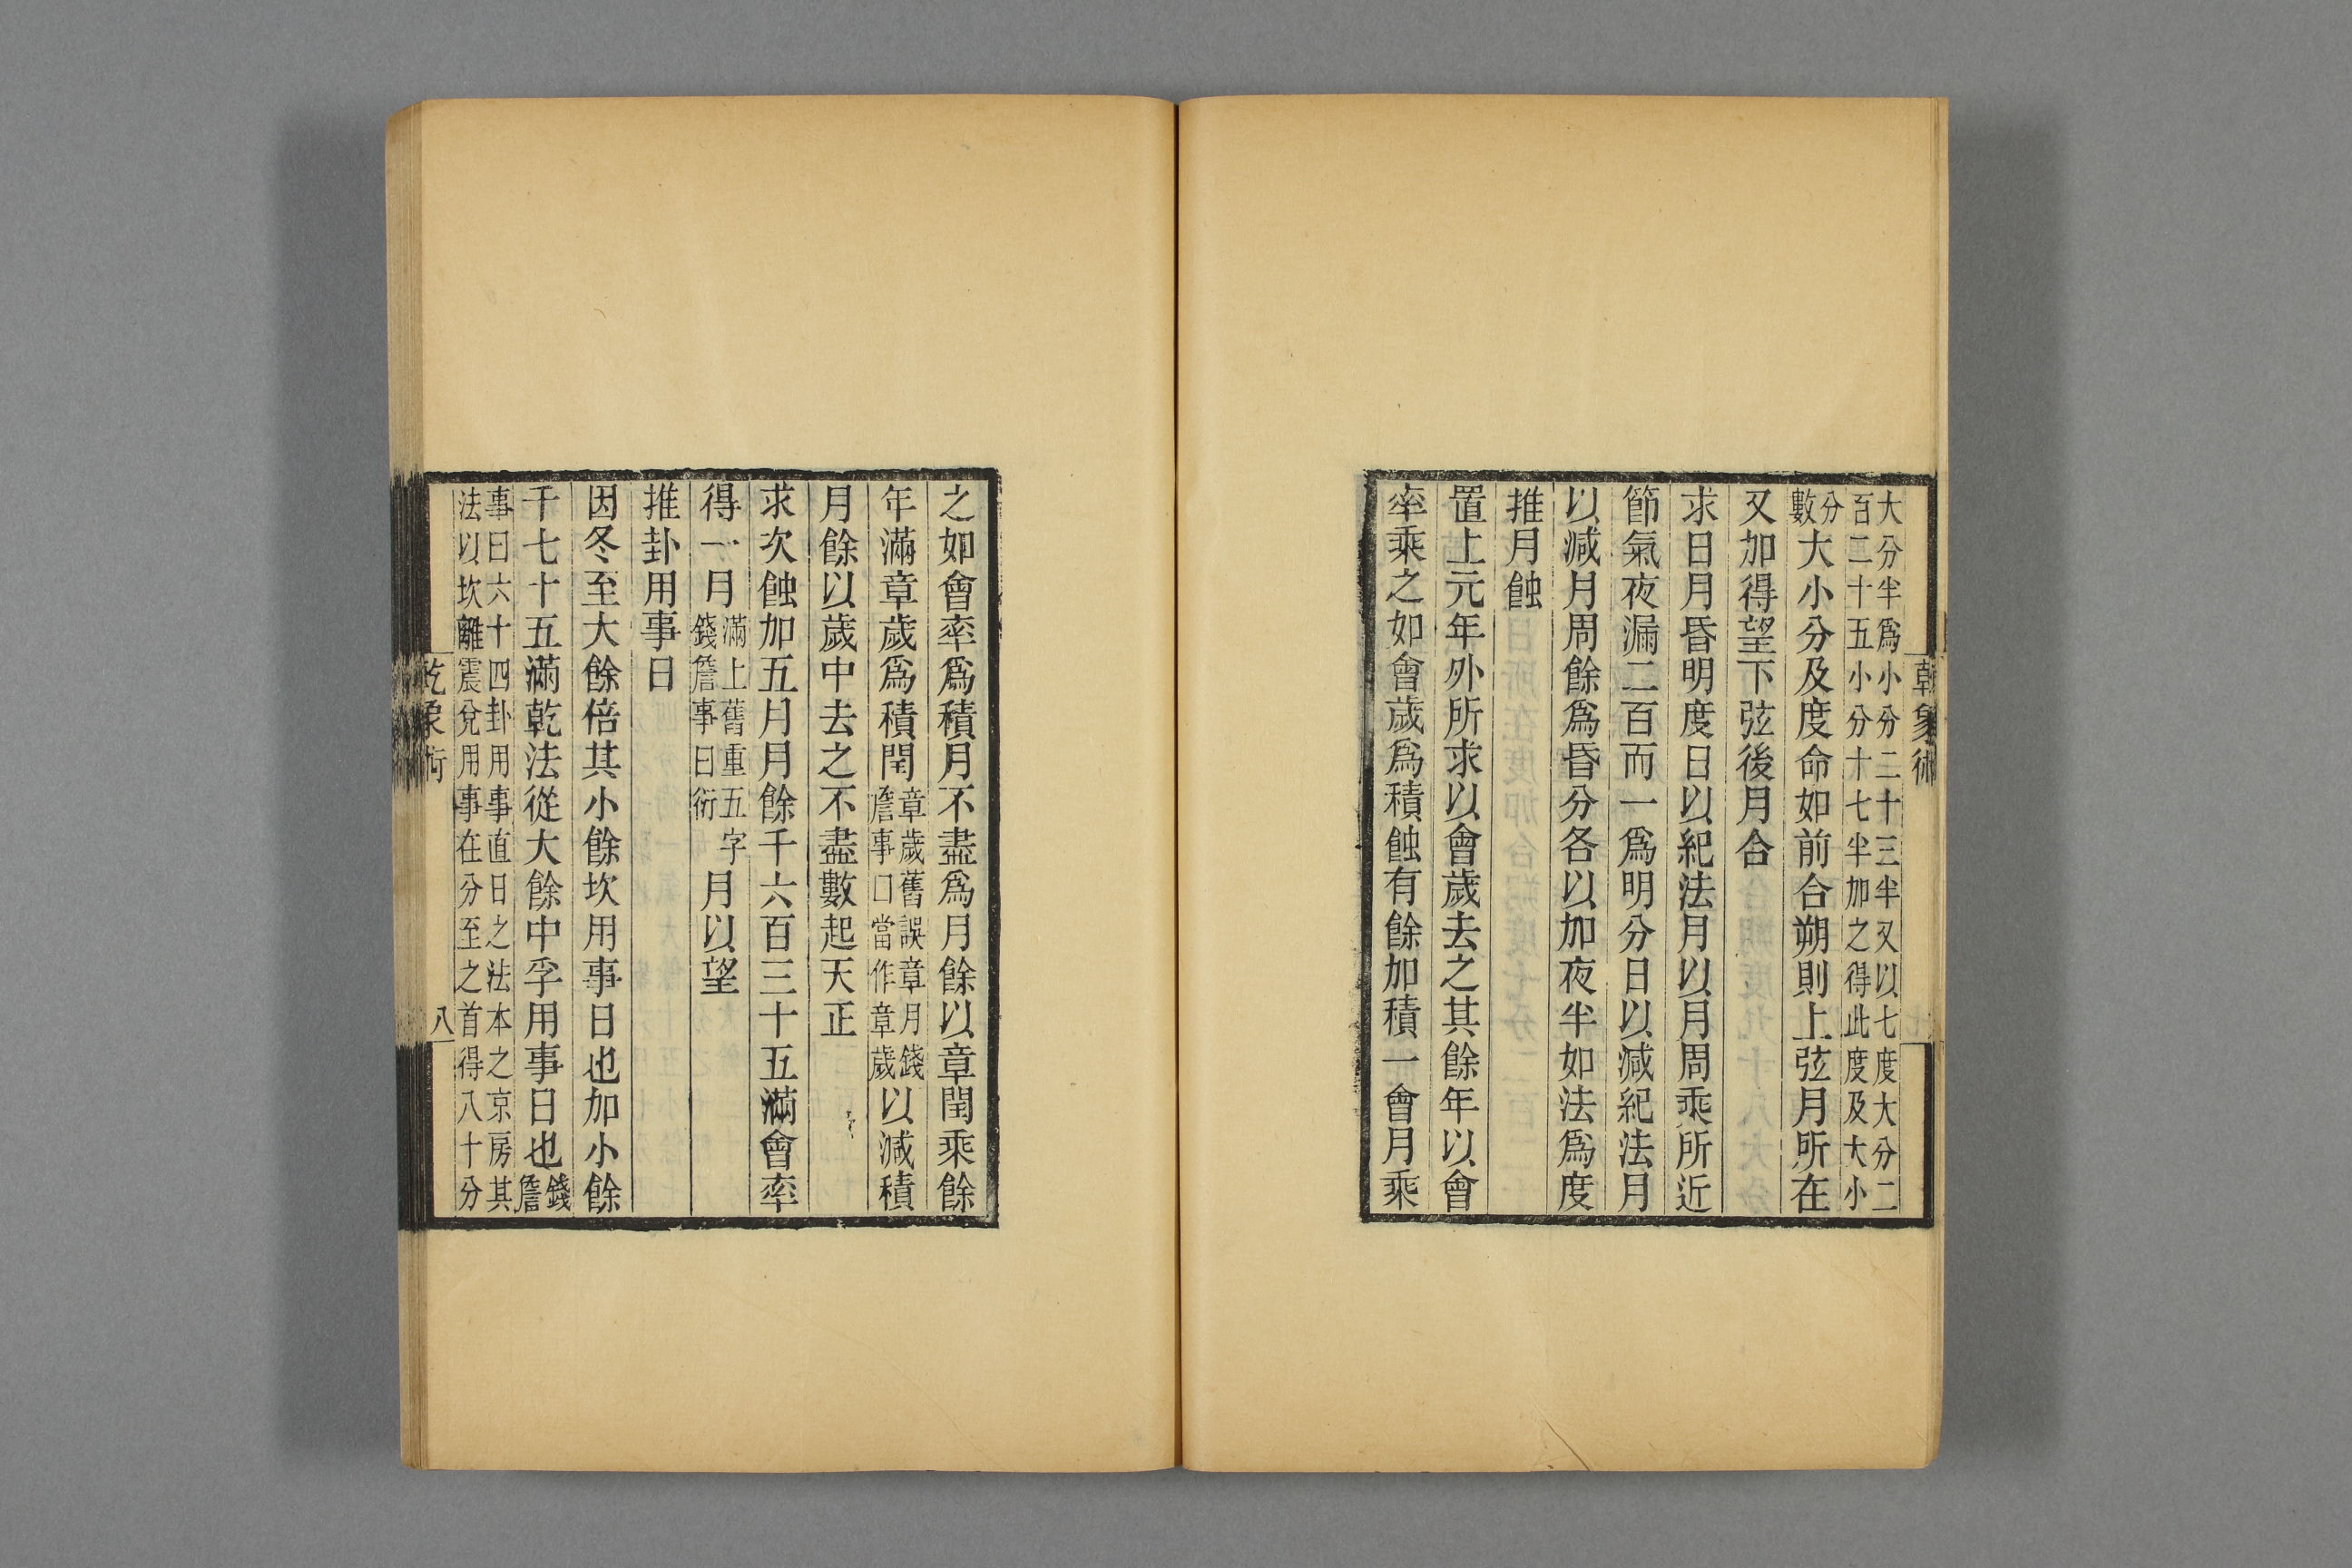 乾象術
大分半爲小分二十三半又以七度大分二
百二十五小分十七半加之得此度及大小
分
數大小分及度命如前合朔則上弦月所在
又加得望下弦後月合
求日月昏明度日以紀法月以月周乘所近
節氣夜漏二百而一爲明分日以減紀法月
以減月周餘爲昏分各以加夜半如法爲度
推月蝕
置上元年外所求以會歲去之其餘年以會
率乘之如會歲爲積蝕有餘加積一會月乘
之如會率爲積月不盡爲月餘以章閏乘餘
年滿章歲爲積閏章歲舊誤章月錢
詹事口當作章歲以減積
月餘以歲中去之不盡數起天正
求次蝕加五月月餘千六百三十五滿會率
得一月滿上舊重五字
錢詹事曰衍月以望
推卦用事日
因冬至大餘倍其小餘坎用事日也加小餘
千七十五滿乾法從大餘中孚用事日也錢
詹
事曰六十四卦用事直日之法本之京房其
法以坎離震兌用事在分至之首得八十分
乾象術
八